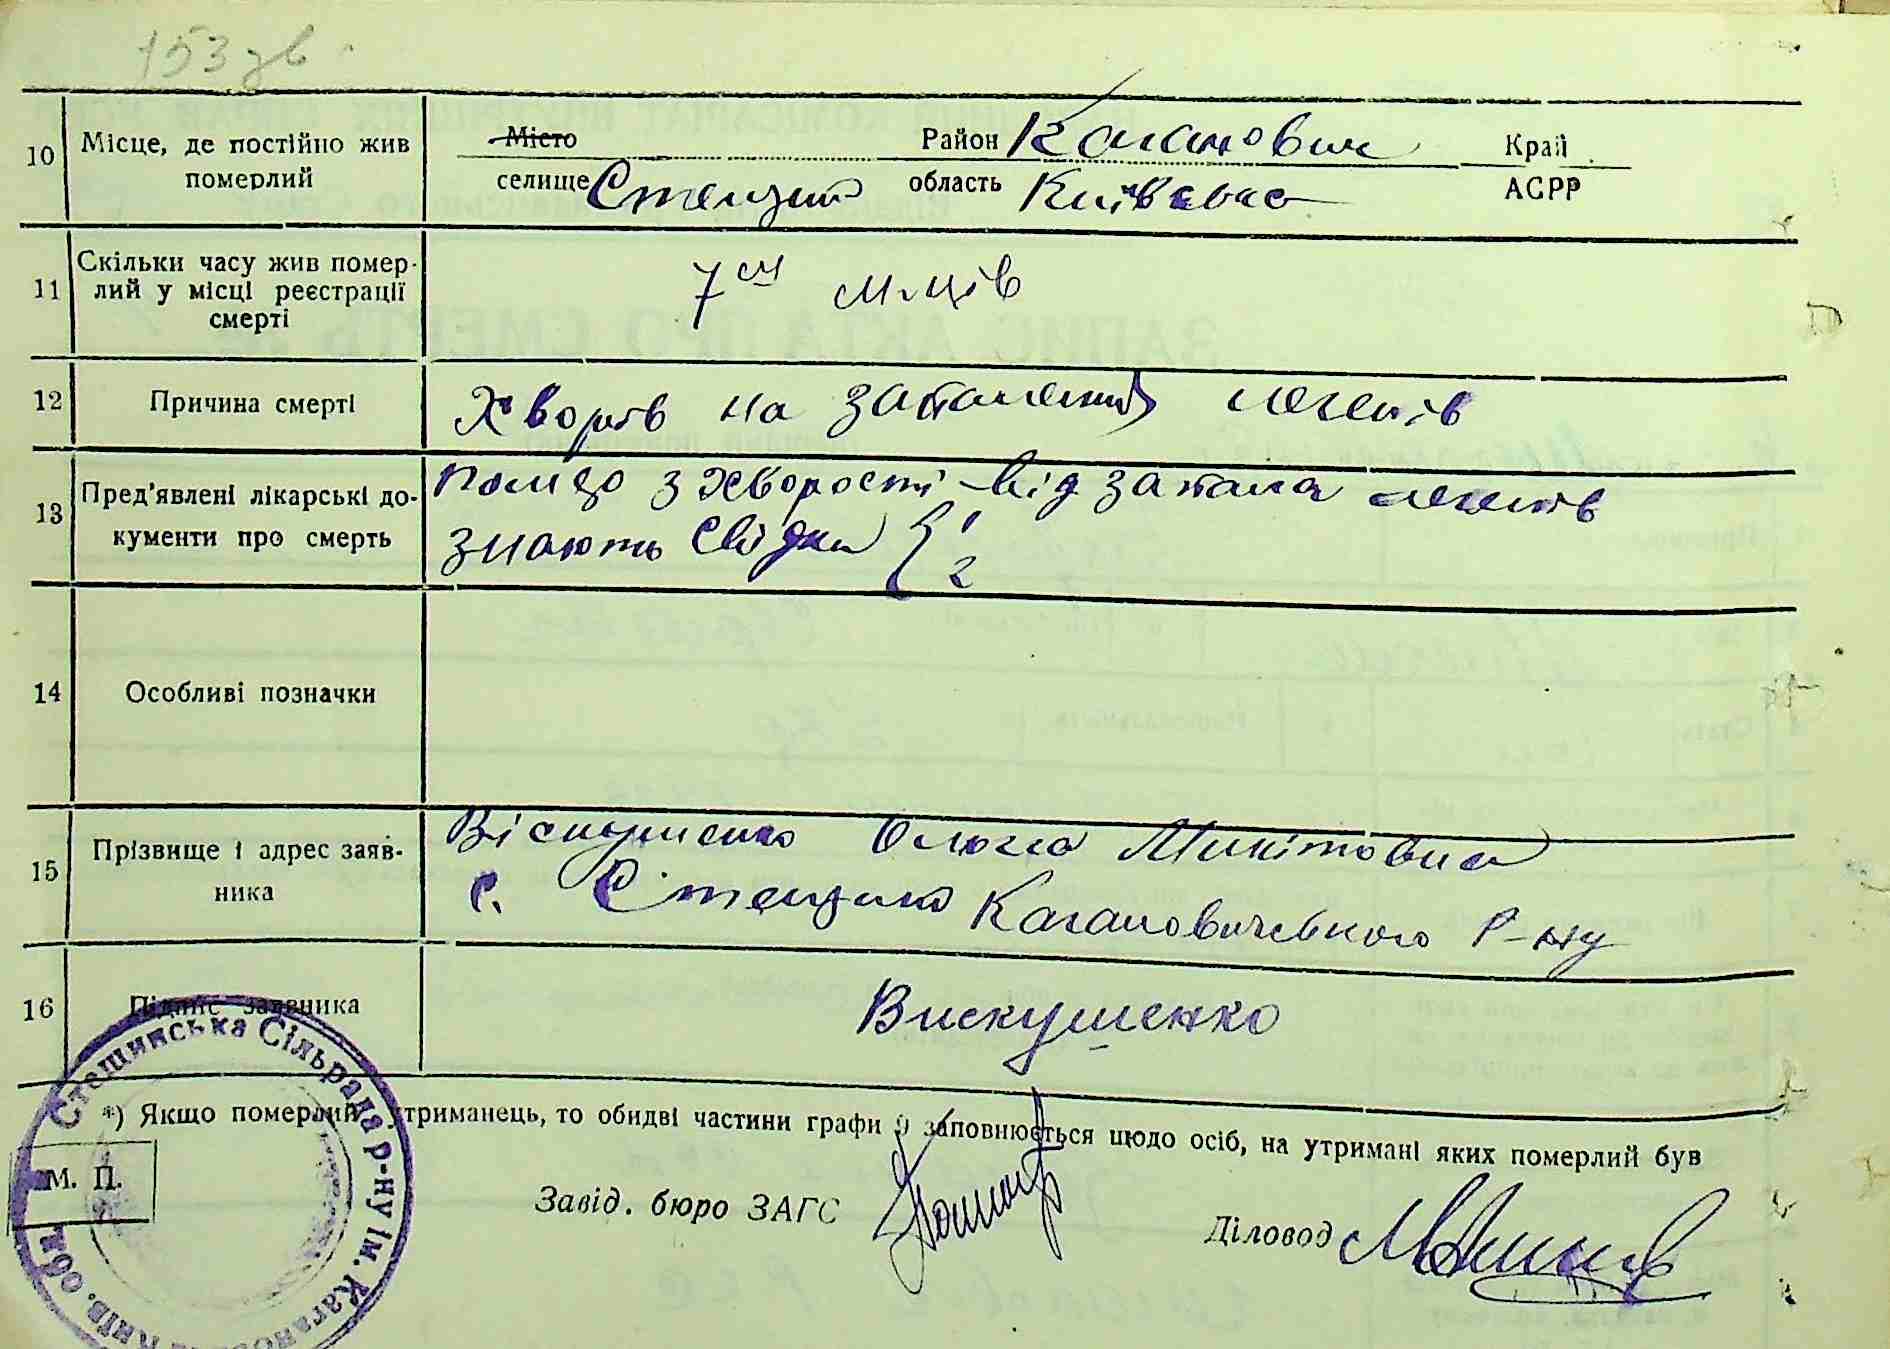 153 зв
10
Місце, де постійно жив
померлий
Місто
селище Стещино
Район Каганович
область Київська
Край
АСРР
11
Скільки часу жив помер-
лий у місці реєстрації
смерті
7 см м-ців
12
Причина смерті
Хворів на запалення легенів
13
Пред'явлені лікарські до-
кументи про смерть
з хворості від запала легенів
знають свідки { 1 2
14
Особливі позначки
15
Прізвище і адрес заяв-
ника
Віскушенко Ольга Микітовна
с. Стещино Кагановичевького р-ну
16
Підпис заявника
Вискушенко
*) Якщо померлий утриманець, то обидві частини графи 9 заповнюється щодо осіб, на утримані яких померлий був
М. П.
Завід. бюро ЗАГС
Діловод
Стещинська Сільрада р-ну ім. Кагановича Київ. обл.